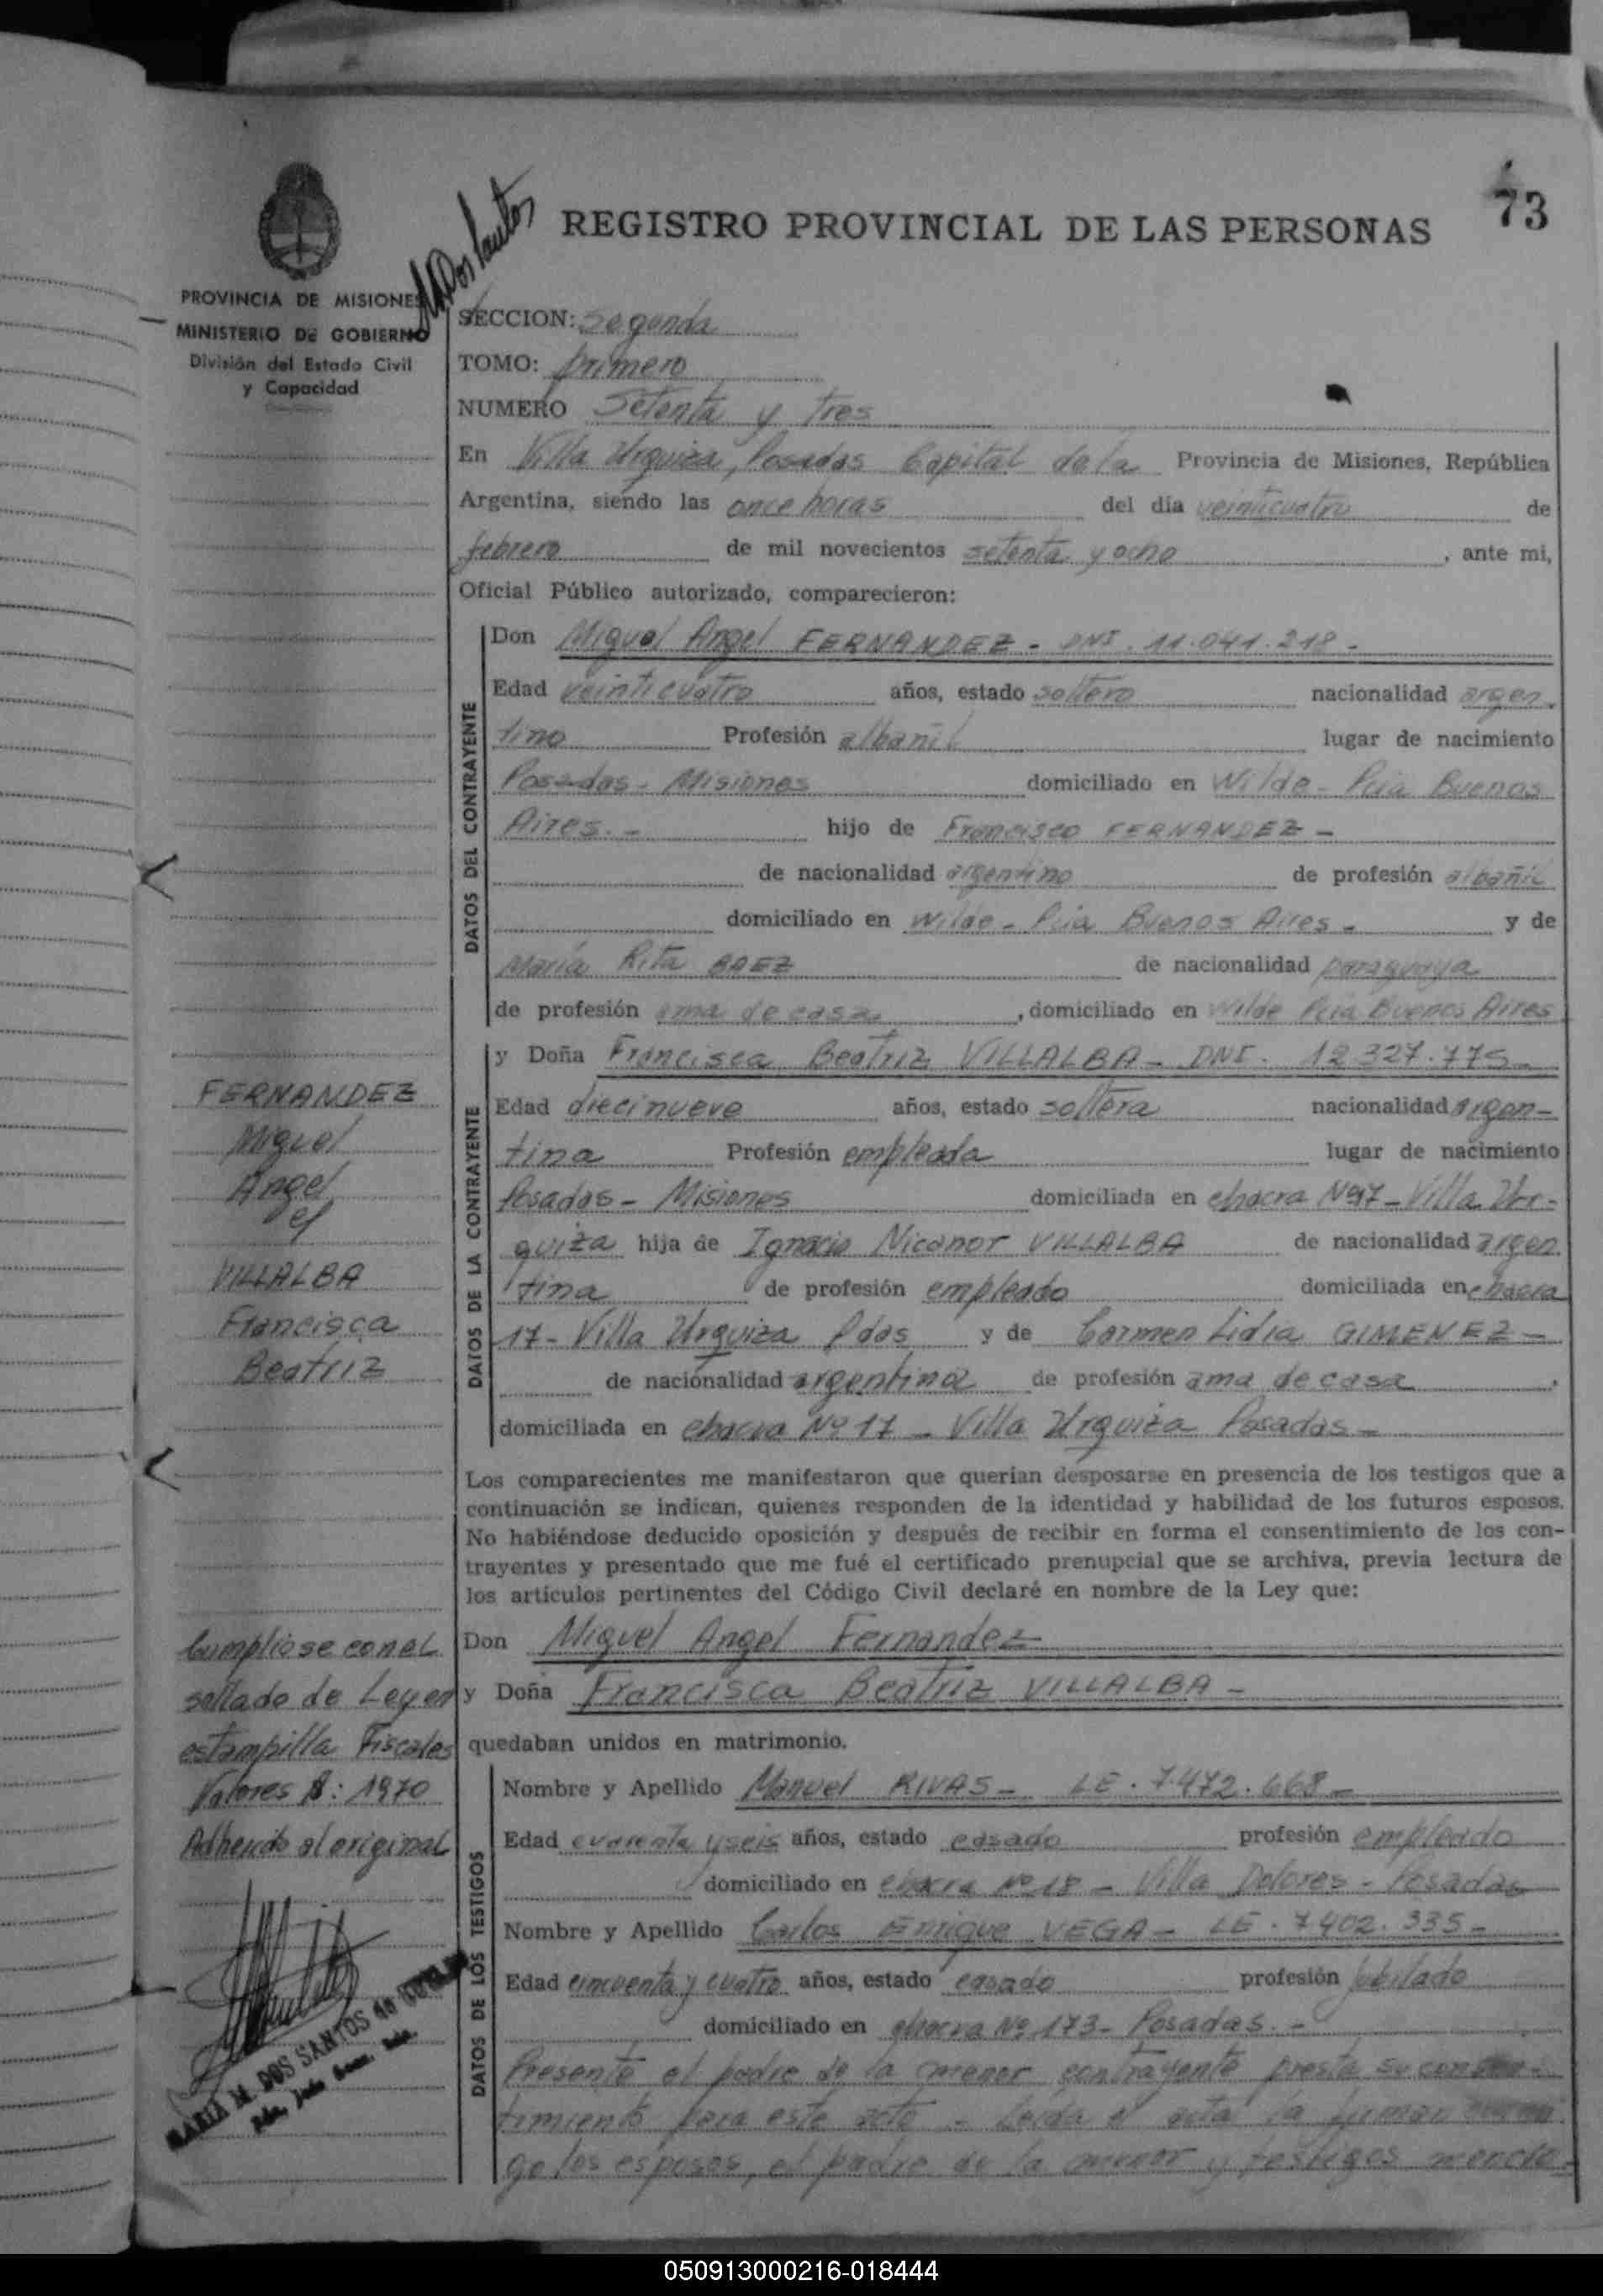 73
REGISTRO PROVINCIAL DE LAS PERSONAS
MDos Santos
PROVINCIA DE MISIONES
MINISTERIO DE GOBIERNO
División del Estado Civil
y Capacidad
SECCION: Segunda
TOMO: primero
NUMERO Setenta y tres
En Villa Urquiza, Posadas Capital de la Provincia de Misiones, República
Argentina, siendo las once horas del día veinticuatro de
febrero de mil novecientos setenta y ocho, ante mi,
Oficial Público autorizado, comparecieron:
DATOS DEL CONTRAYENTE
Don Miguel Angel FERNANDEZ - DNI. 11.041.218 -
Edad veinticuatro años, estado soltero nacionalidad argen-
tino Profesión albañil lugar de nacimiento
Posadas - Misiones domiciliado en Wilde - Pcia Buenos
Aires.- hijo de Francisco FERNANDEZ -
de nacionalidad argentino de profesión albañil
domiciliado en Wilde - Pcia Buenos Aires - y de
María Rita BAEZ de nacionalidad paraguaya
de profesión ama de casa, domiciliado en Wilde Pcia Buenos Aires
DATOS DE LA CONTRAYENTE
y Doña Francisca Beatriz VILLALBA - DNI. 12.327.775 -
Edad diecinueve años, estado soltera nacionalidad argen-
tina Profesión empleada lugar de nacimiento
Posadas - Misiones domiciliada en chacra Nº17 - Villa Ur-
quiza hija de Ignacio Nicanor VILLALBA de nacionalidad argen
tina de profesión empleado domiciliada en chacra
17 - Villa Urquiza Pdas y de Carmen Lidia GIMENEZ -
de nacionalidad argentina de profesión ama de casa.
domiciliada en chacra Nº 17 - Villa Urquiza Posadas -
FERNANDEZ
Miguel
Angel
c/
VILLALBA
Francisca
Beatriz
Los comparecientes me manifestaron que querían desposarse en presencia de los testigos que a
continuación se indican, quienes responden de la identidad y habilidad de los futuros esposos.
No habiéndose deducido oposición y después de recibir en forma el consentimiento de los con-
trayentes y presentado que me fué el certificado prenupcial que se archiva, previa lectura de
los artículos pertinentes del Código Civil declaré en nombre de la Ley que:
Don Miguel Angel Fernandez
y Doña Francisca Beatriz VILLALBA -
quedaban unidos en matrimonio.
Cumpliose con el
sellado de Ley en
estampilla Fiscales
Valores $: 1970
Adherido al original
DATOS DE LOS TESTIGOS
Nombre y Apellido Manuel RIVAS - LE. 7.472.668 -
Edad cuarenta y seis años, estado casado profesión empleado
domiciliado en chacra Nº 18 - Villa Dolores - Posadas
Nombre y Apellido Carlos Enrique VEGA - LE. 7.402.335 -
Edad cincuenta y cuatro años, estado casado profesión jubilado
domiciliado en chacra Nº 173 - Posadas. -
Presente el padre de la menor contrayente presta su consen-
timiento para este acto - Leída el acta la firman conmi
go los esposos, el padre de la menor y testigos mencio-
MARIA M. DOS SANTOS de
050913000216-018444